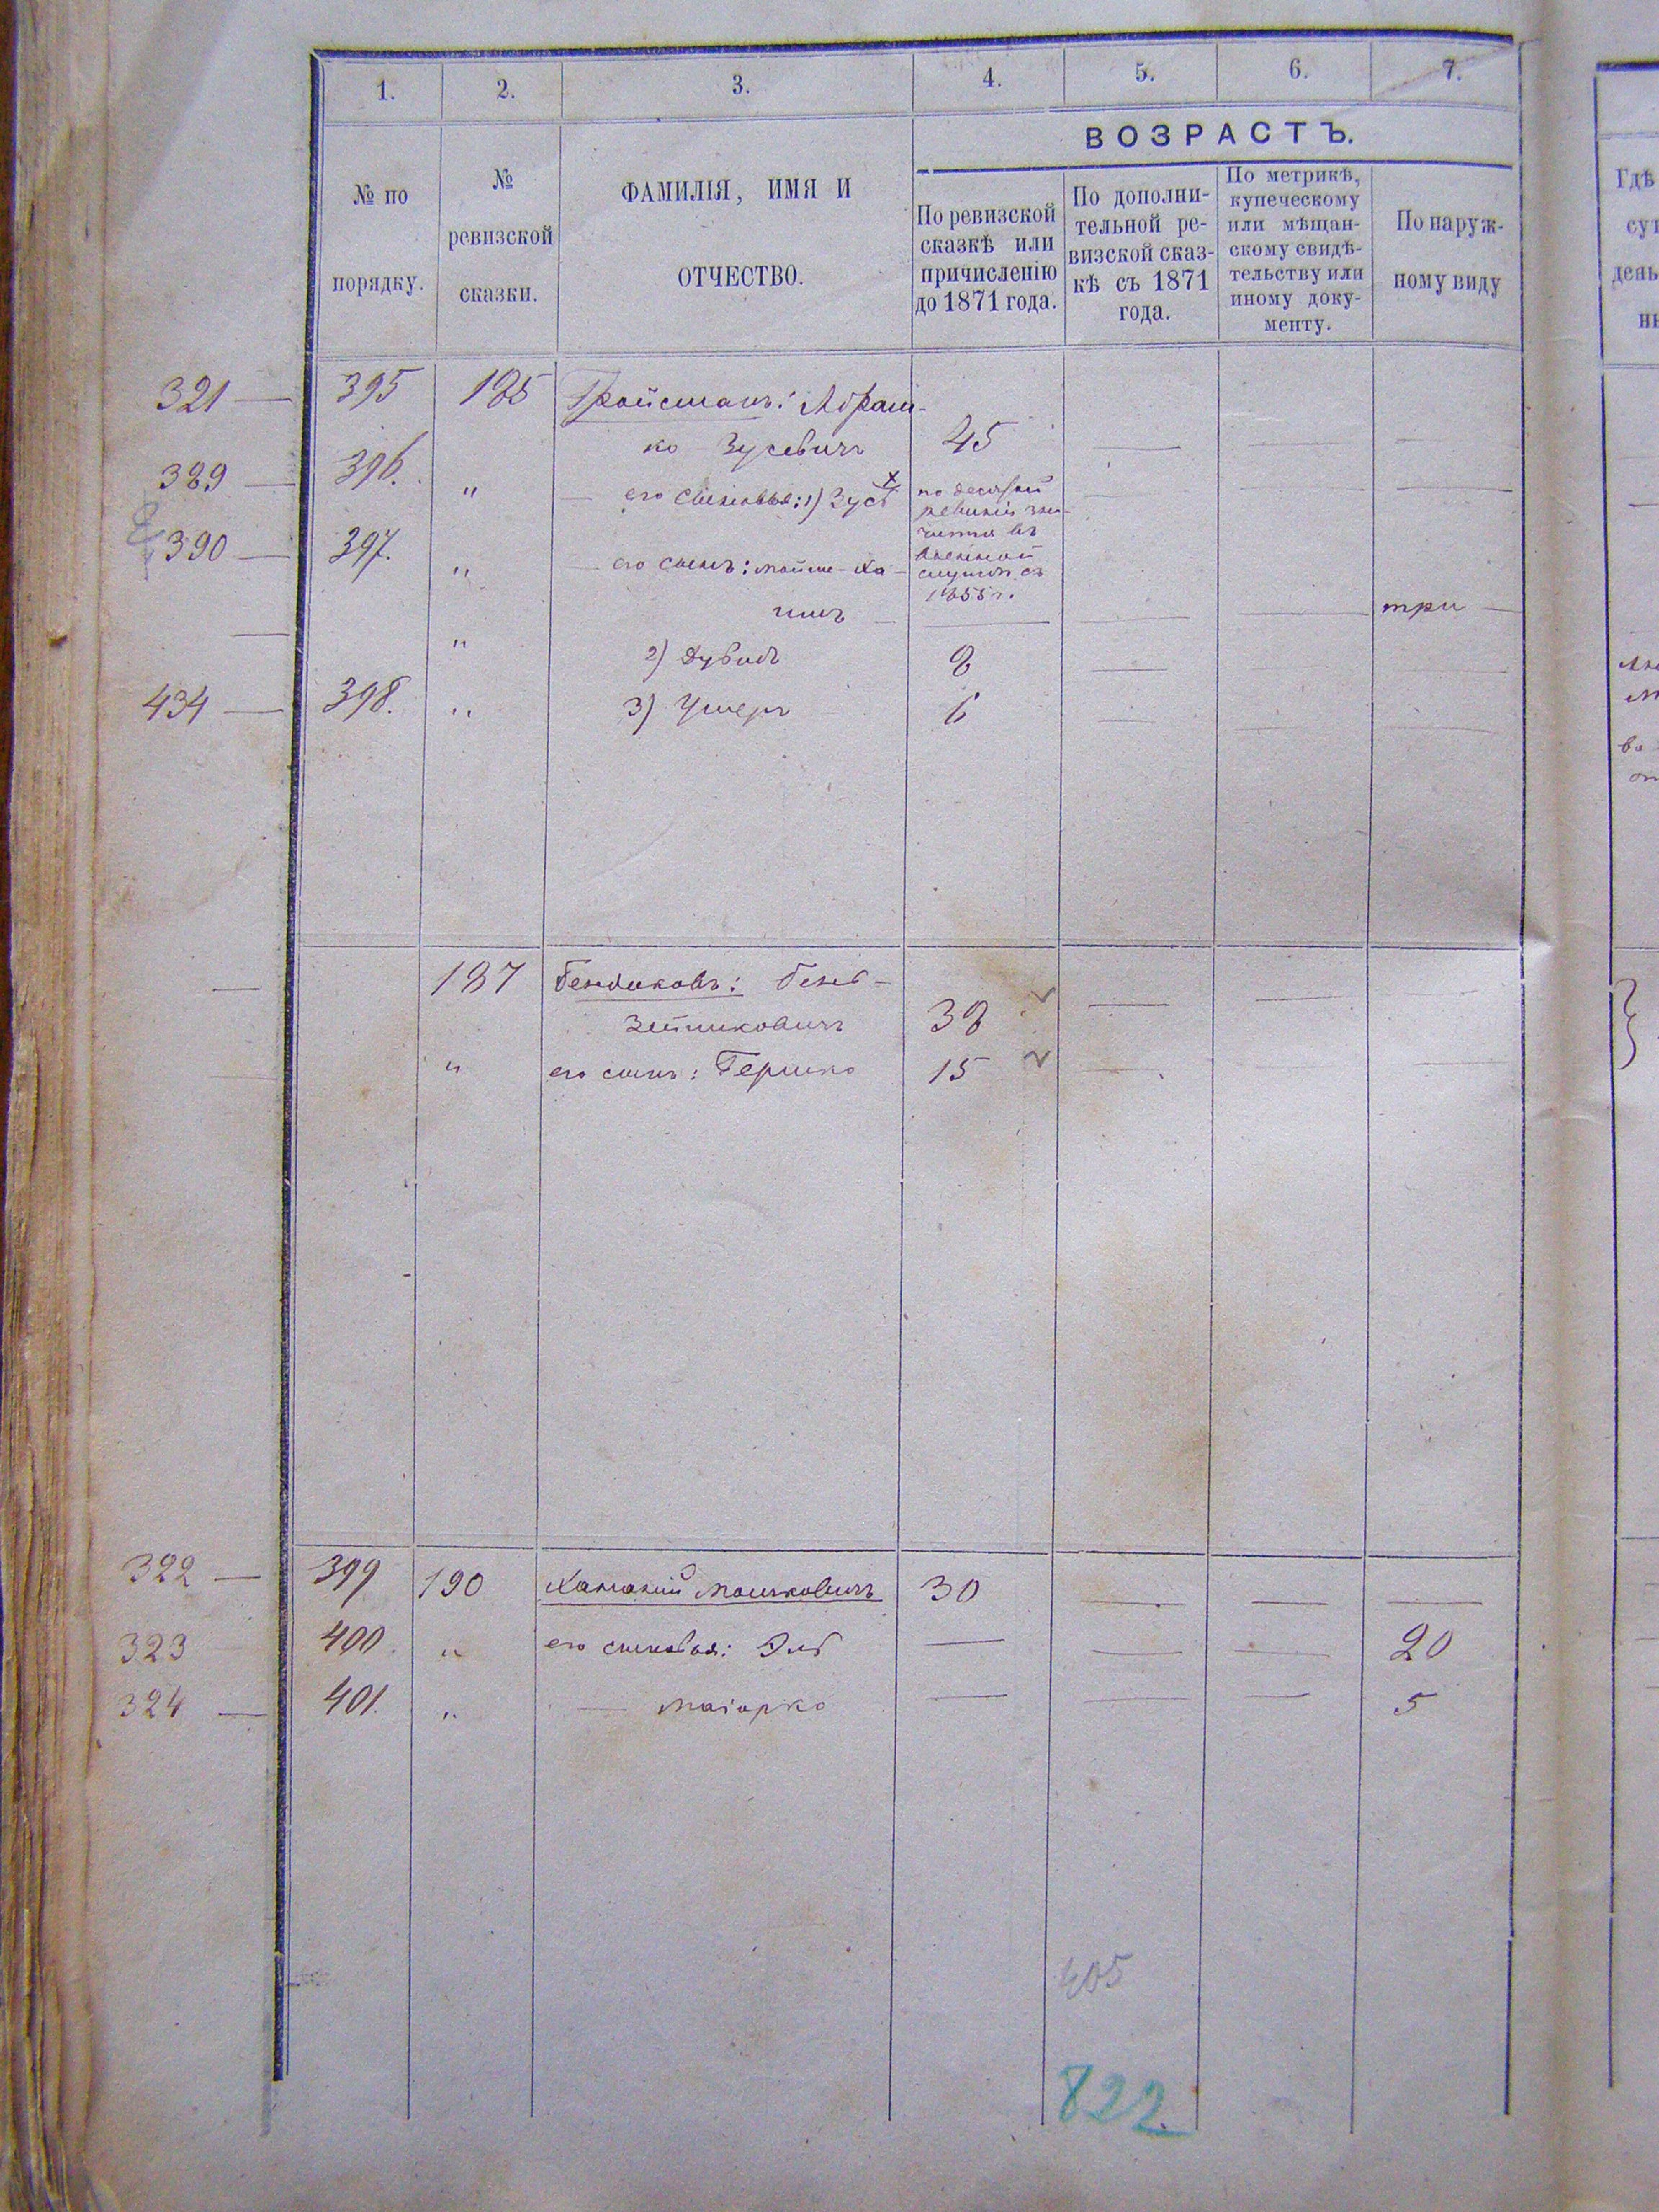 1. 2. 3. 4. 5. 6. 7.
ВОЗРАСТЪ.
№ по
порядку.
№
ревизской
сказки.
ФАМИЛІЯ, ИМЯ И
ОТЧЕСТВО.
По ревизской
сказкѣ или
причисленію
до 1871 года.
По дополни-
тельной ре-
визской сказ-
кѣ съ 1871
года.
По метрикѣ,
купеческому
или мѣщан-
скому свидѣ-
тельству или
иному доку-
менту.
По наруж-
ному виду
Гдѣ
день
321 — 395 185 Гройсманъ: Абрам-
ко Зусевичъ 45 — — —
389 — 396. " — его сыновья: 1) Зусь по десятой — — —
ревизіи зна-
чится въ
390 — 397. " — его сынъ: Мойше-Ха- военной
службѣ съ
1855 г.
имъ — — — — три —
— " 2) Дувидъ 8 —
434 — 398. " 3) Ушеръ 6 — — —
— 187 Бендиковъ: Бень-
Зейликовичъ 38 — —
— " его сынъ: Гершко 15 — — —
322 — 399 190 Хананій Мошковичъ 30 — — —
323 400 " его сыновья: Эль — — — 20
324 — 401. " — Маіорко — — — 5
405
822